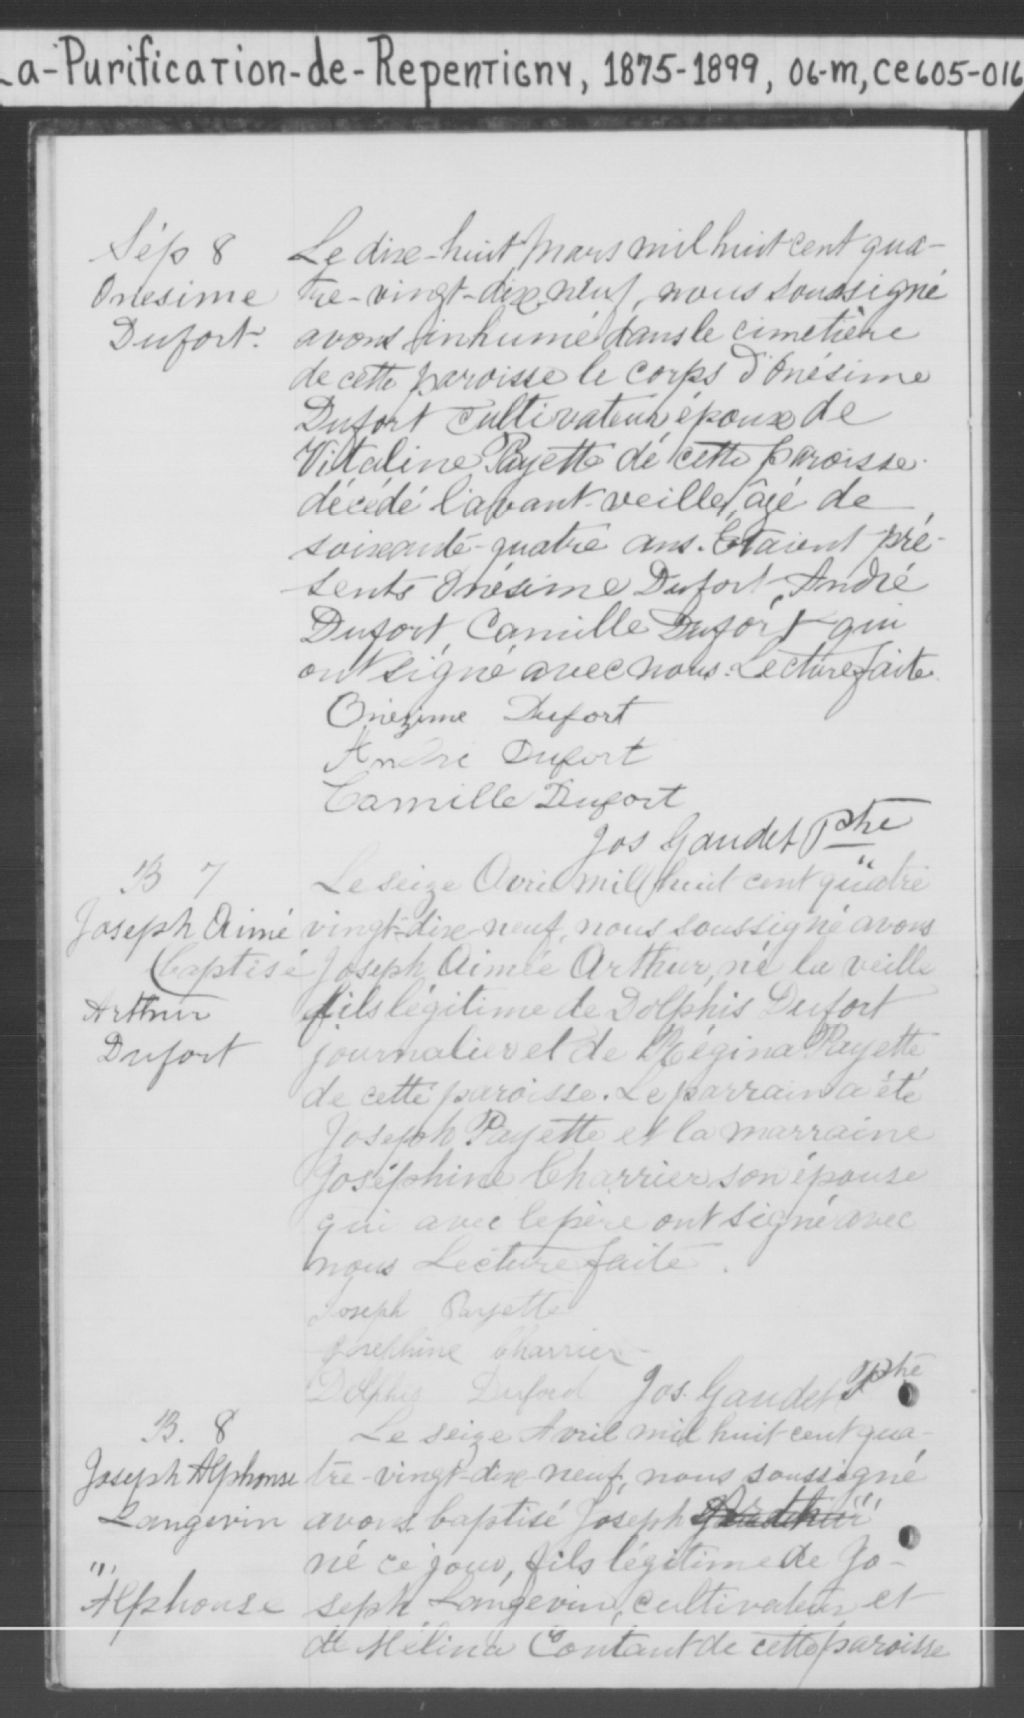 La-Purification-de-Repentigny, 1875-1899, 06-m, ce605-016
Sép 8
Onesime
Dufort.
Le dix-huit Mars mil huit cent qua-
tre-vingt-dix neuf, nous soussigné
avons inhumé dans le cimetière
de cette paroisse le corps d'Onésime
Dufort cultivateur époux de
Vitaline Payette de cette paroisse
décédé l'avant-veille, âgé de
soixante-quatre ans. Etaient pré-
sents Onésime Dufort, André
Dufort, Camille Dufort qui
ont signé avec nous. Lecture faite.
Onezime Dufort
André Dufort
Camille Dufort
Jos Gaudet Ptre
B 7
Joseph Aimé
baptisé
Arthur
Dufort
Le seize Avril mil huit cent quatre
vingt-dix-neuf, nous soussigné avons
Joseph Aimée Arthur, né la veille
fils légitime de Dolphis Dufort
journalier et de Régina Payette
de cette paroisse. Le parrain a été
Joseph Payette et la marraine
Joséphine Charrier son épouse
qui avec le père ont signé avec
nous Lecture faite.
Joseph Payette
Josephine Charrier
Dolphis Duford Jos. Gaudet Ptre
B. 8
Joseph Alphonse
Langevin
"
Alphonse
Le seize Avril mil huit cent qua-
tre-vingt-dix-neuf, nous soussigné
avons baptisé Joseph
né ce jour, fils légitime de Jo-
seph Langevin, cultivateur et
de Mélina Contant de cette paroisse